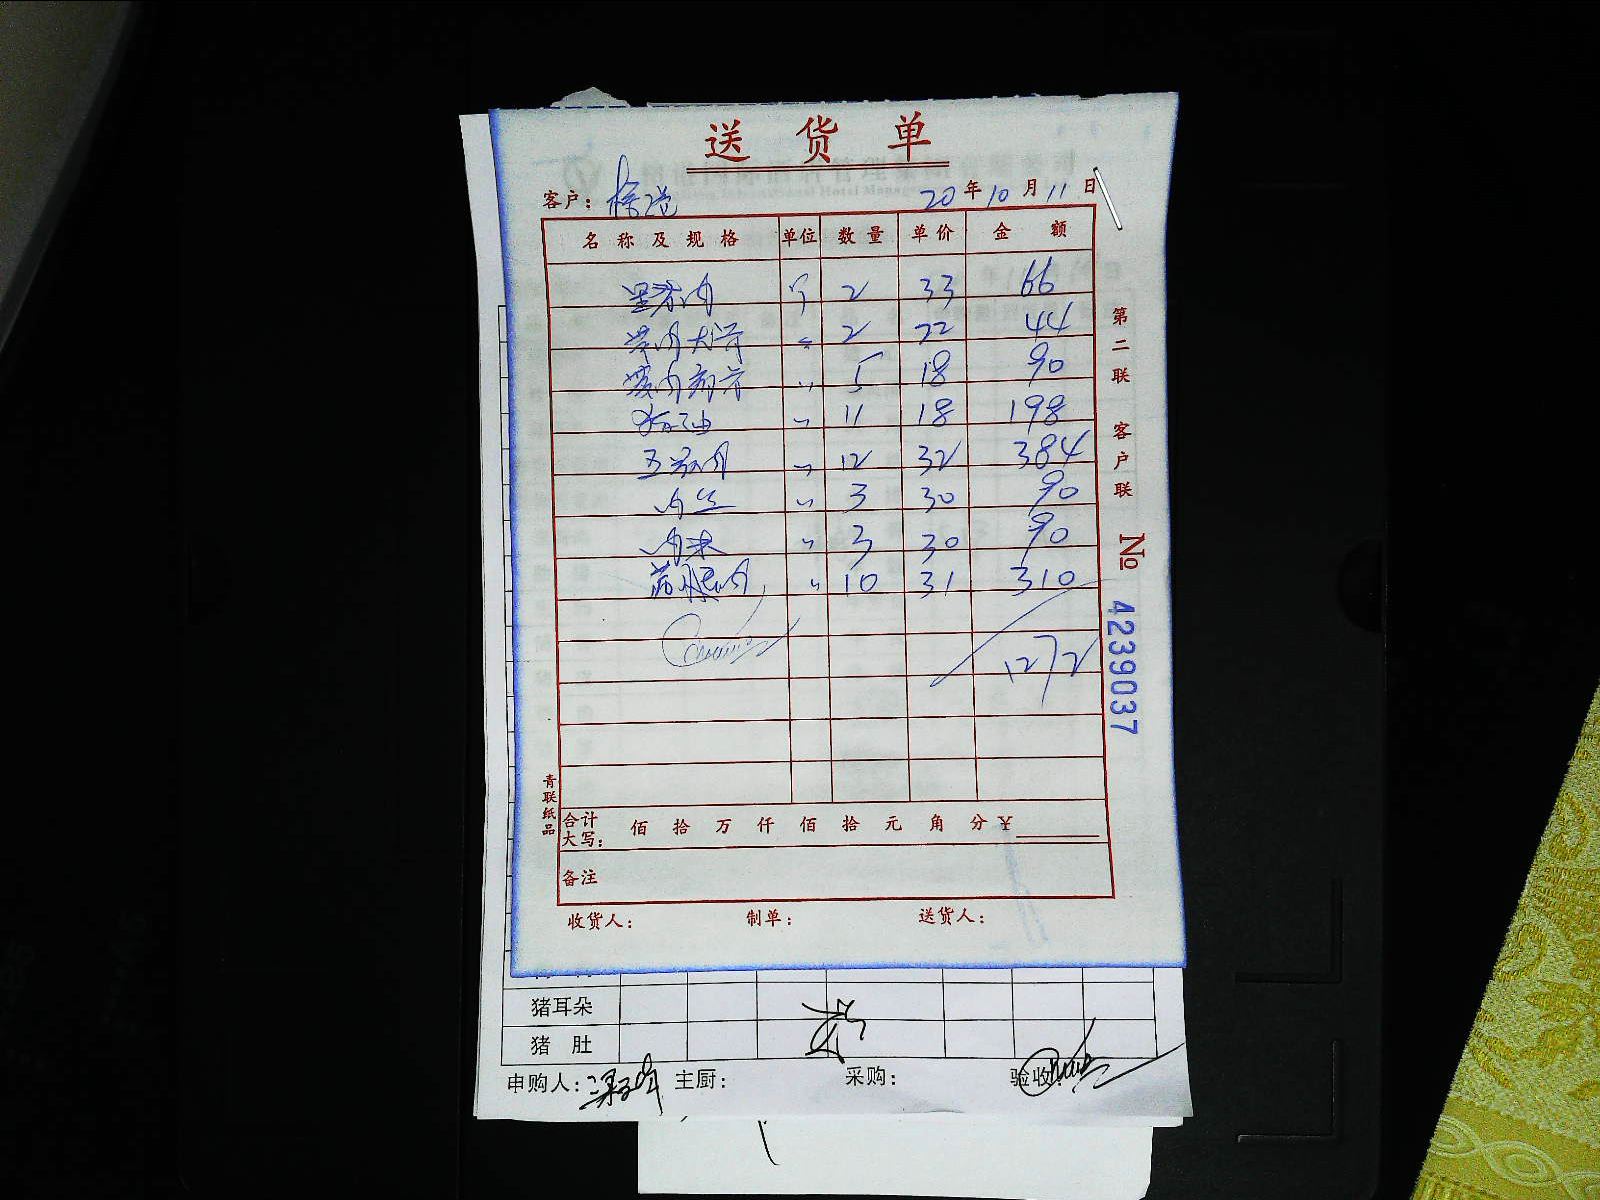 送货单
客户: 徐 20年10月11日
名称及规格 单位 数量 单价 金额
里脊肉 斤 2 33 66
带肉大骨 〃 2 22 44
肉扇骨 〃 5 18 90
猪油 〃 11 18 198
五花肉 〃 12 32 384
肉丝 〃 3 30 90
肉末 〃 3 30 90
肉 〃 10 31 310
1272
合计大写: 佰 拾 万 仟 佰 拾 元 角 分 ¥
备注
收货人: 制单: 送货人:
第二联 客户联
No 4239037
青联纸品
猪耳朵
猪 肚
申购人: 主厨: 采购: 验收